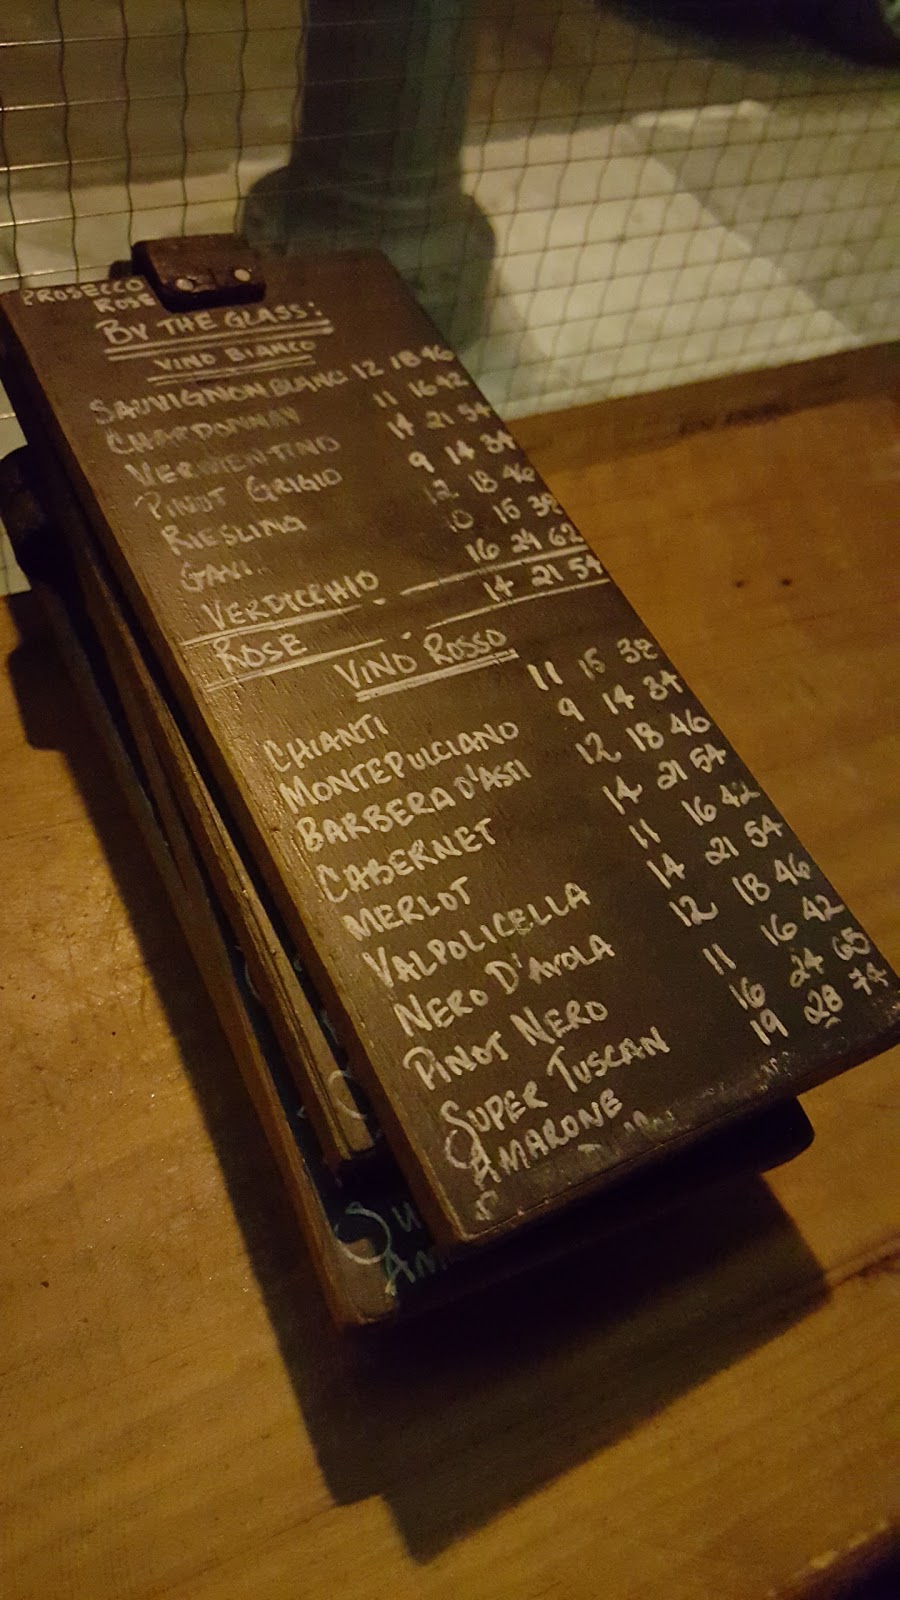 PROSECCO
ROSE
BY THE GLASS:
VINO BIANCO
SAUVIGNON BLANC 12 18 46
CHARDONNAY 11 16 42
VERMENTINO 14 21 54
PINOT GRIGIO 9 14 34
RIESLING 12 18 46
GAVI 10 15 38
VERDICCHIO 16 24 62
ROSE 14 21 54
VINO ROSSO
CHIANTI 11 15 38
MONTEPULCIANO 9 14 34
BARBERA D'ASTI 12 18 46
CABERNET 14 21 54
MERLOT 11 16 42
VALPOLICELLA 14 21 54
NERO D'AVOLA 12 18 46
PINOT NERO 11 16 42
SUPER TUSCAN 16 24 65
AMARONE 19 28 74
SU
AM